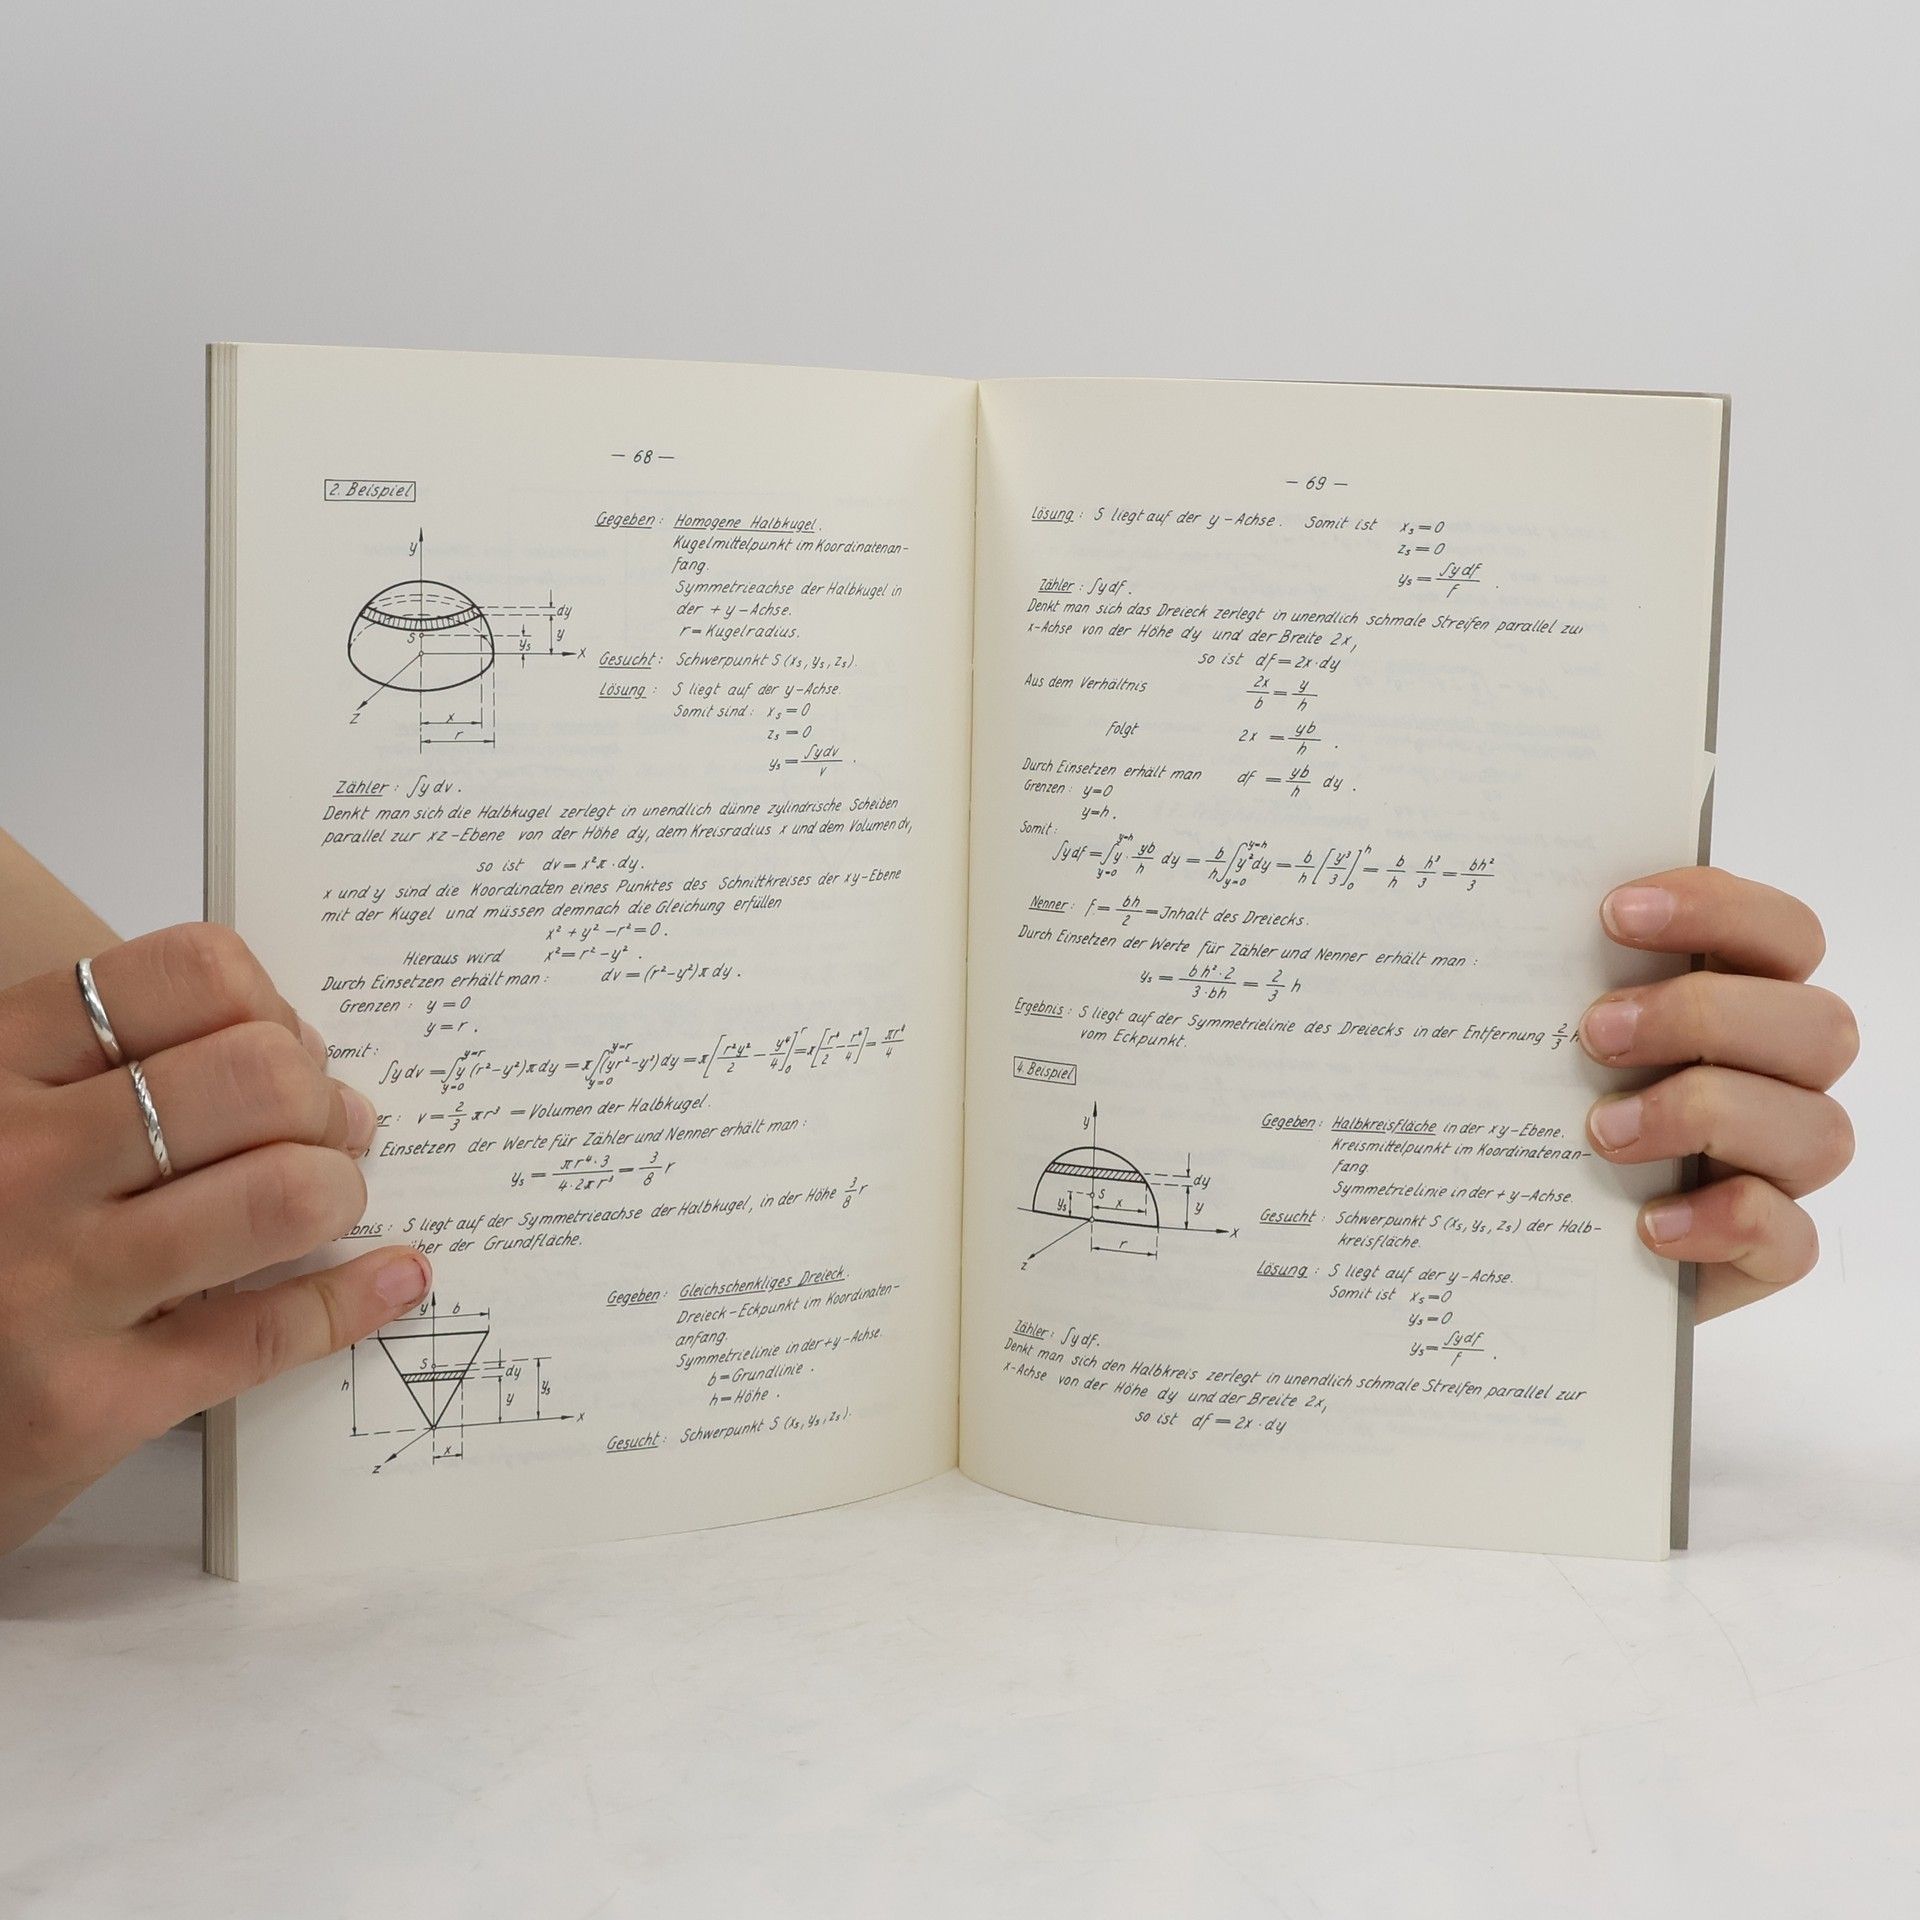 — 68 —
2. Beispiel
Gegeben: Homogene Halbkugel.
Kugelmittelpunkt im Koordinatenan-
fang.
Symmetrieachse der Halbkugel in
der + y – Achse.
r = Kugelradius.
Gesucht: Schwerpunkt S (xₛ, yₛ, zₛ).
Lösung: S liegt auf der y – Achse.
Somit sind: xₛ = 0
zₛ = 0
yₛ = ∫y dv / v .
y
dy
y
yₛ
S
x
z
x
r
Zähler: ∫y dv.
Denkt man sich die Halbkugel zerlegt in unendlich dünne zylindrische Scheiben
parallel zur xz – Ebene von der Höhe dy, dem Kreisradius x und dem Volumen dv,
so ist dv = x²π · dy.
x und y sind die Koordinaten eines Punktes des Schnittkreises der xy – Ebene
mit der Kugel und müssen demnach die Gleichung erfüllen
x² + y² – r² = 0.
Hieraus wird x² = r² – y² .
Durch Einsetzen erhält man: dv = (r² – y²) π dy .
Grenzen: y = 0
y = r .
Somit:
∫y dv = ∫_{y=0}^{y=r} y (r² – y²) π dy = π ∫_{y=0}^{y=r} (yr² – y³) dy = π [r²y²/2 – y⁴/4]₀ʳ = π [r⁴/2 – r⁴/4] = πr⁴/4
er: v = 2/3 πr³ = Volumen der Halbkugel.
Einsetzen der Werte für Zähler und Nenner erhält man:
yₛ = πr⁴·3 / 4·2πr³ = 3/8 r
bnis: S liegt auf der Symmetrieachse der Halbkugel, in der Höhe 3/8 r
über der Grundfläche.
Gegeben: Gleichschenkliges Dreieck.
Dreieck – Eckpunkt im Koordinaten-
anfang.
Symmetrielinie in der + y – Achse.
b = Grundlinie .
h = Höhe .
Gesucht: Schwerpunkt S (xₛ, yₛ, zₛ).
y
b
S
dy
h
y
yₛ
x
x
z
— 69 —
Lösung: S liegt auf der y – Achse. Somit ist xₛ = 0
zₛ = 0
yₛ = ∫y df / f .
Zähler: ∫y df.
Denkt man sich das Dreieck zerlegt in unendlich schmale Streifen parallel zur
x-Achse von der Höhe dy und der Breite 2x,
so ist df = 2x · dy
Aus dem Verhältnis 2x/b = y/h
folgt 2x = yb/h .
Durch Einsetzen erhält man df = yb/h dy .
Grenzen: y = 0
y = h .
Somit:
∫y df = ∫_{y=0}^{y=h} y · yb/h dy = b/h ∫_{y=0}^{y=h} y² dy = b/h [y³/3]₀ʰ = b/h h³/3 = bh²/3
Nenner: f = bh/2 = Inhalt des Dreiecks.
Durch Einsetzen der Werte für Zähler und Nenner erhält man:
yₛ = bh²·2 / 3·bh = 2/3 h
Ergebnis: S liegt auf der Symmetrielinie des Dreiecks in der Entfernung 2/3 h
vom Eckpunkt.
4. Beispiel
Gegeben: Halbkreisfläche in der xy – Ebene.
Kreismittelpunkt im Koordinatenan-
fang.
Symmetrielinie in der + y – Achse.
Gesucht: Schwerpunkt S (xₛ, yₛ, zₛ) der Halb-
kreisfläche.
Lösung: S liegt auf der y – Achse.
Somit ist xₛ = 0
yₛ = 0
yₛ = ∫y df / f .
y
dy
S
yₛ
x
y
x
r
z
Zähler: ∫y df.
Denkt man sich den Halbkreis zerlegt in unendlich schmale Streifen parallel zur
x-Achse von der Höhe dy und der Breite 2x,
so ist df = 2x · dy